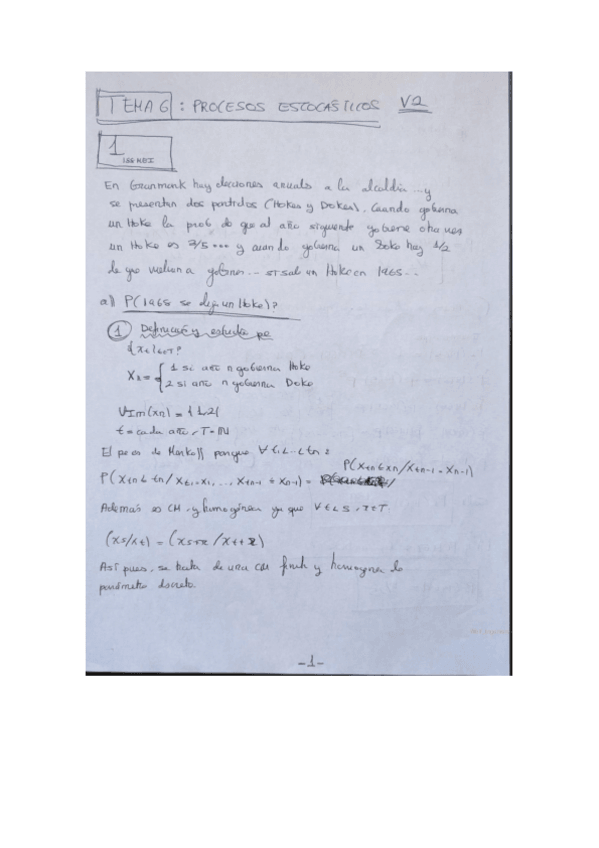 TEMA 6 : PROCESOS ESTOCÁSTICOS V2
1
En Granmank hay elecciones anuales a la alcaldía ... y
se presentan dos partidos (Hokes y Dokes). Cuando gobierna
un Hoke la prob de que al año siguiente gobierne otra vez
un Hoke es ... y cuando gobierna un Doke hay 1/2
de que vuelvan a gobernar ... si sal un Hoke en 1965 ..
a)) P(1968 se elig un Hoke)?
1 Definición y estudio pe
{xt}t∈T?
= { 1 si año n gobierna Hoke
2 si año n gobierna Doke
VIm(xn) = {1,2{
t = cada año, T = IN
El peos de Markoff porque ∀ t1 < .. < tn :
P(xtn ≤ xn/xtn-1 = xn-1)
P(xtn ≤ tn / xt1 = x1, ..., xtn-1 = xn-1) =
Además es CM y homogénea ya que ∀ t < s, τ ∈ T
(xs/xt) = (xs+τ / xt+τ)
Así pues, se trata de una CM finita y homogénea de
parámetro discreto.
-1-